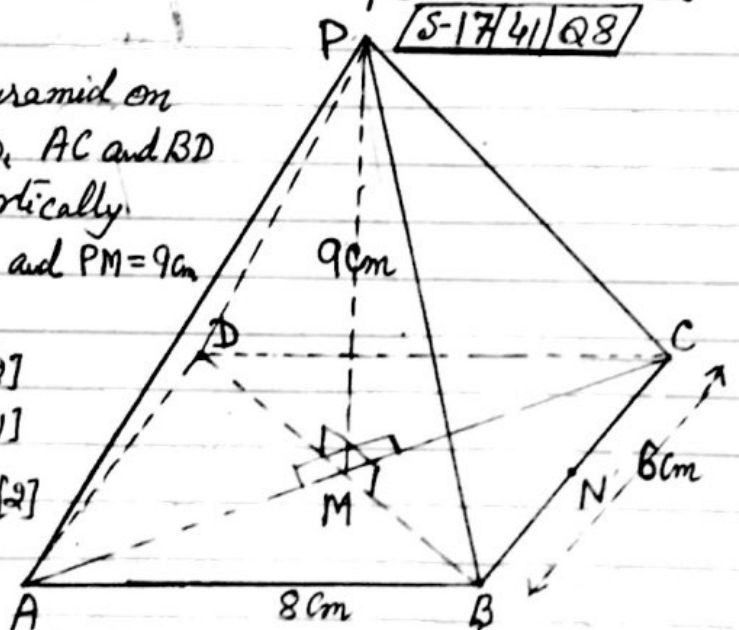 P S-17/41/Q8
pyramid on
AC and BD
vertically
and PM=9cm
9cm
D C
N 6cm
M
[2]
A 8cm B